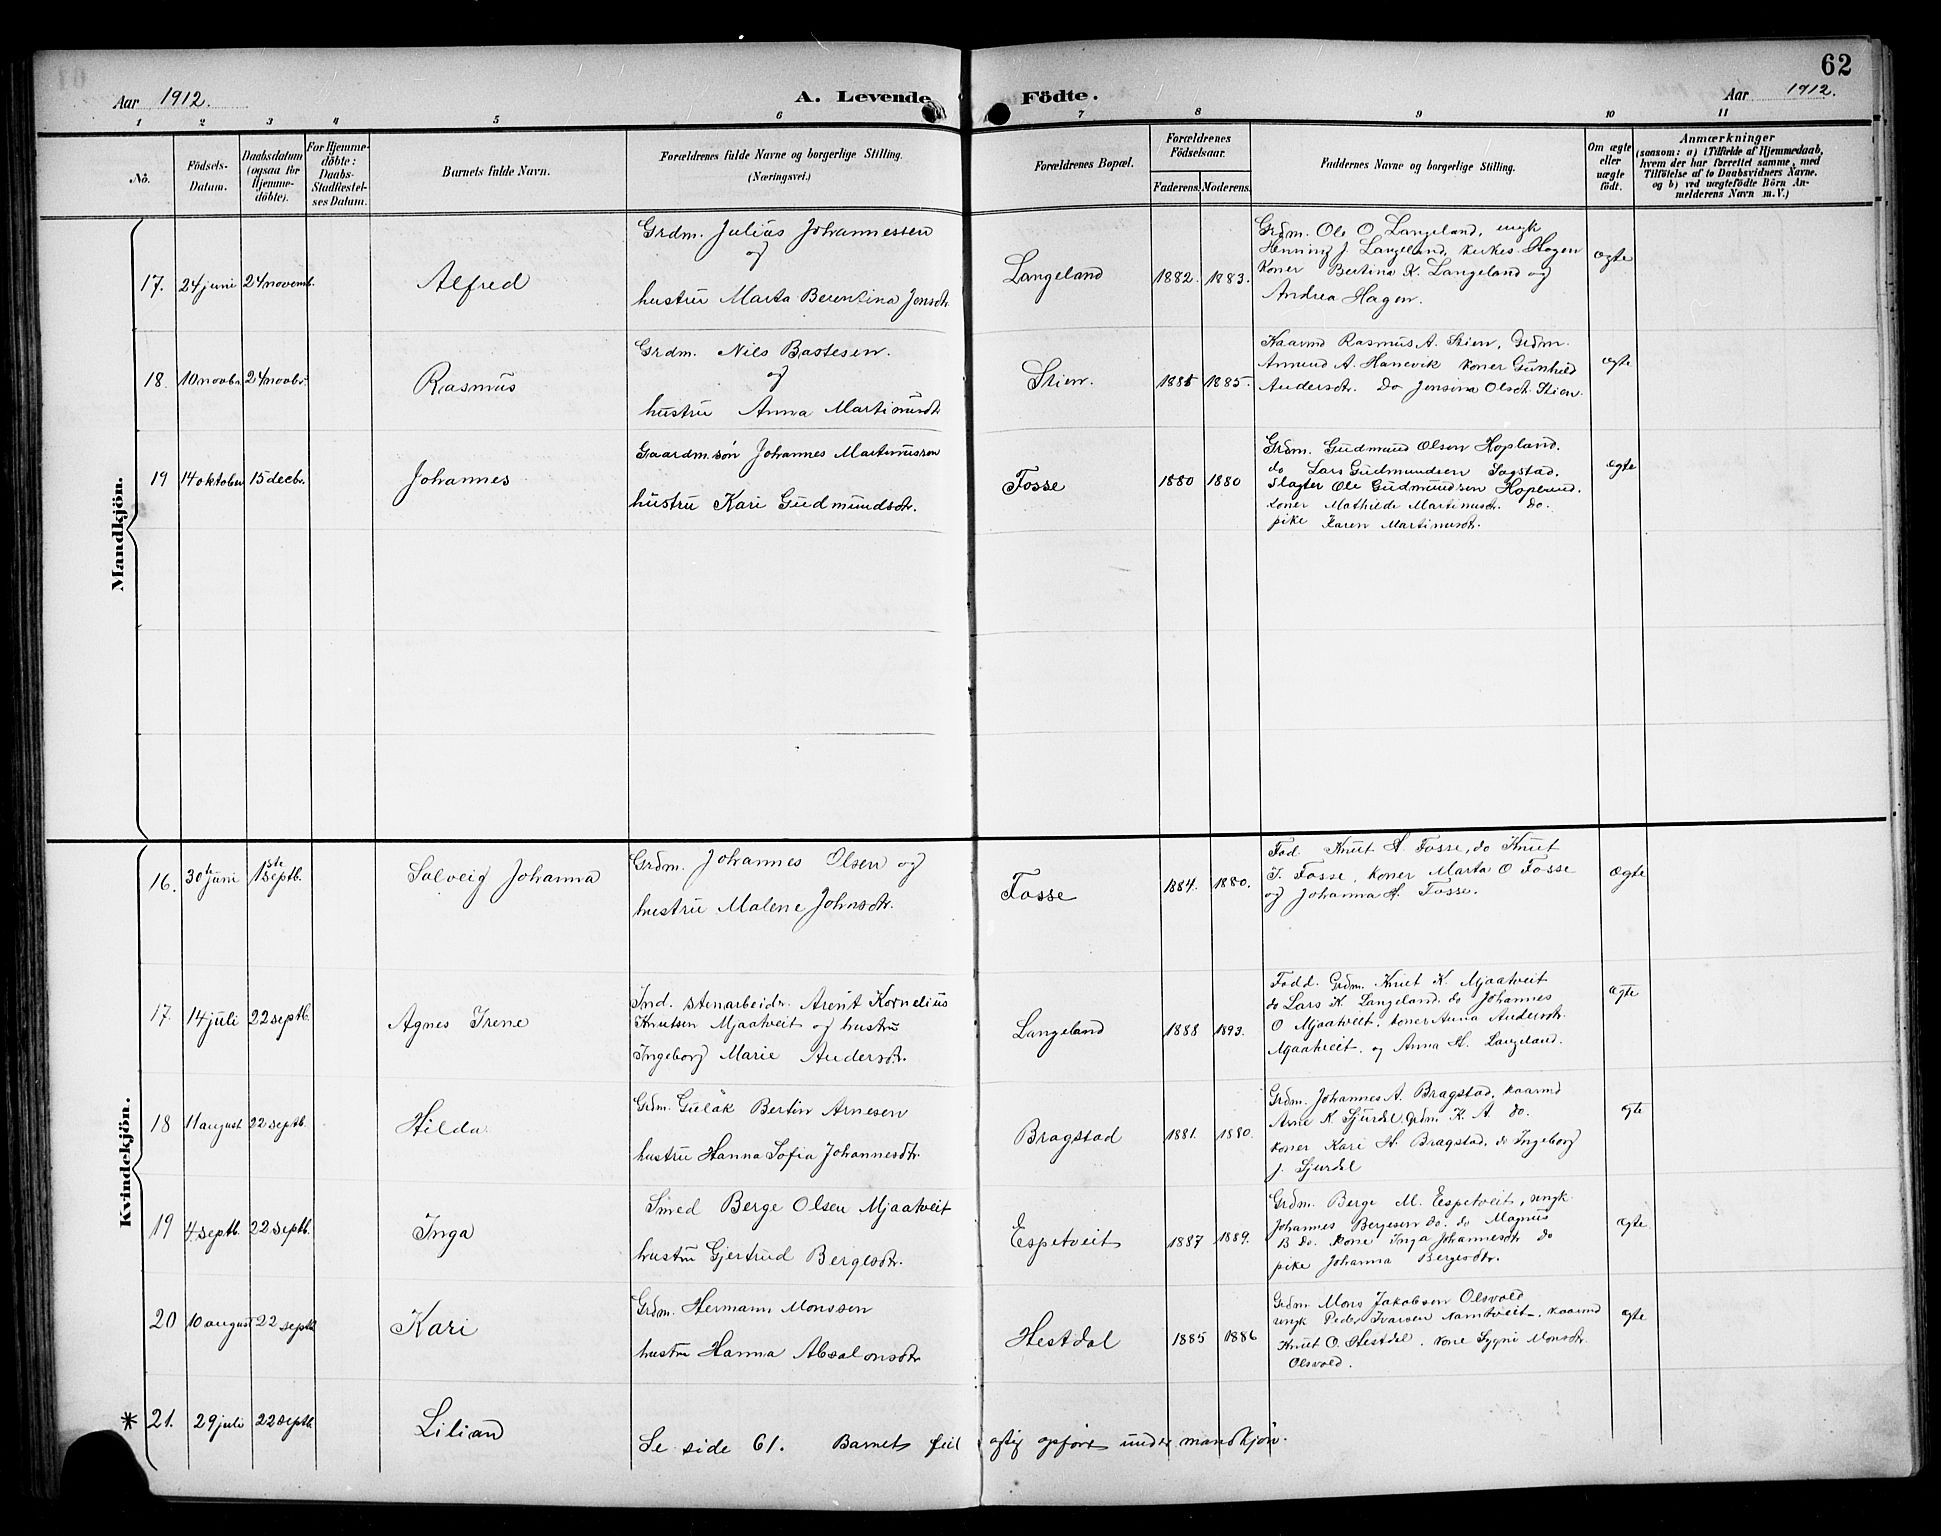 62
Aar 1912.
A. Levende Födte.
Aar 1912.
1 2 3 4 5 6 7 8 9 10 11
No.
Födsels-Datum.
Daabsdatum (ogsaa for Hjemme-döbte).
For Hjemme-döbte: Daabs-Stadfæstel-ses Datum.
Barnets fulde Navn.
Forældrenes fulde Navne og borgerlige Stilling.
(Næringsvei.)
Forældrenes Bopæl.
Forældrenes Födselsaar.
Faderens. Moderens.
Faddernes Navne og borgerlige Stilling.
Om ægte eller uægte födt.
Anmærkninger
(saasom: a) i Tilfælde af Hjemmedaab,
hvem der har forrettet samme, med
Tilföielse af to Daabsvidners Navne.
og b) ved uægtefödte Börn An-
melderens Navn m. V.)
Mandkjön.
17. 24 juni 24 novemb. Alfred
Grdm. Julius Johannessen
og
hustru Marta Berentina Jonsdtr.
Langeland 1882. 1883.
Grdm. Ole O Langeland, ungk
Henning J. Langeland, kirkes. Hagen
Koner Bertina K. Langeland og
Andrea Hagen.
Ægte
18. 10 novbr. 24 novbr. Rasmus
Grdm. Nils Bastesen.
og
hustru Anna Martinusdtr
Stien. 1885 1885.
Kaarmd Rasmus A. Stien, Grdm.
Anmund A. Hanevik koner Gunhild
Andersdtr. Do Jensina Olsdtr. Stien.
Ægte
19 14 oktober 15 decbr. Johannes
Gaardm. søn Johannes Martinussen
hustru Kari Gudmundsdtr.
Fosse 1880 1880
Grdm. Gudmund Olsen Hopland.
do Lars Gudmundsen Sagstad.
Slagter Ole Gudmundsen Hopland.
koner Mathilde Martinusdtr. do.
pike Karen Martinusdtr.
Ægte
Kvindekjön.
16. 30te juni 1ste septb. Solveig Johanna
Grdm. Johannes Olsen og
hustru Malene Johnsdtr.
Fosse 1884. 1880.
Fad. Knut H. Fosse, do Knut
J. Fosse, koner Marta O Fosse
og Johanna H. Fosse.
Ægte
17. 14 juli 22 septb. Agnes Irene
Ind. stenarbeidr. Arent Kornelius
Knutsen Mjaatveit og hustru
Ingeborg Marie Andersdtr.
Langeland 1888 1893.
Fadd. Grdm. Knut K. Mjaatveit
do Lars K. Langeland. do Johannes
O Mjaatveit, koner Anna Andersdtr.
Mjaatveit. og Anna H. Langeland.
Ægte
18 11 august 22 septb. Hilda
Grdm. Gulak Bertin Arnesen
hustru Hanna Sofia Johannesdtr.
Bragstad 1881. 1880.
Grdm. Johannes A. Bragstad, kaarmd
Arne K Sjurdl. Grdm. K. A. do.
koner Kari H. Bragstad. do Ingeborg
J. Sjurdal
Ægte
19 4 septb. 22 septb. Inga
Smed Berge Olsen Mjaatveit
hustru Gjertrud Bergesdtr.
Espetveit 1887 1889.
Grdm. Berge M. Espetveit, ungk.
Johannes Bergesen do. do Magnus
B do. kone Inga Johannesdtr do
pike Johanna Bergesdtr.
Ægte
20 10 august 22 septb Kari
Grdm. Hermann Monssen
hustru Hanna Absalonsdtr
Hestdal 1885 1886
Grdm Mons Jakobsen Olsvold
ungk Peder Ivarsen Namtveit, kaarmd
Knut O. Hestdal. kone Sygni Monsdtr.
Olsvold.
Ægte
* 21. 29 juli 22 septb. Lilian
Se side 61. Barnet feilagtig opført under mandkjøn.